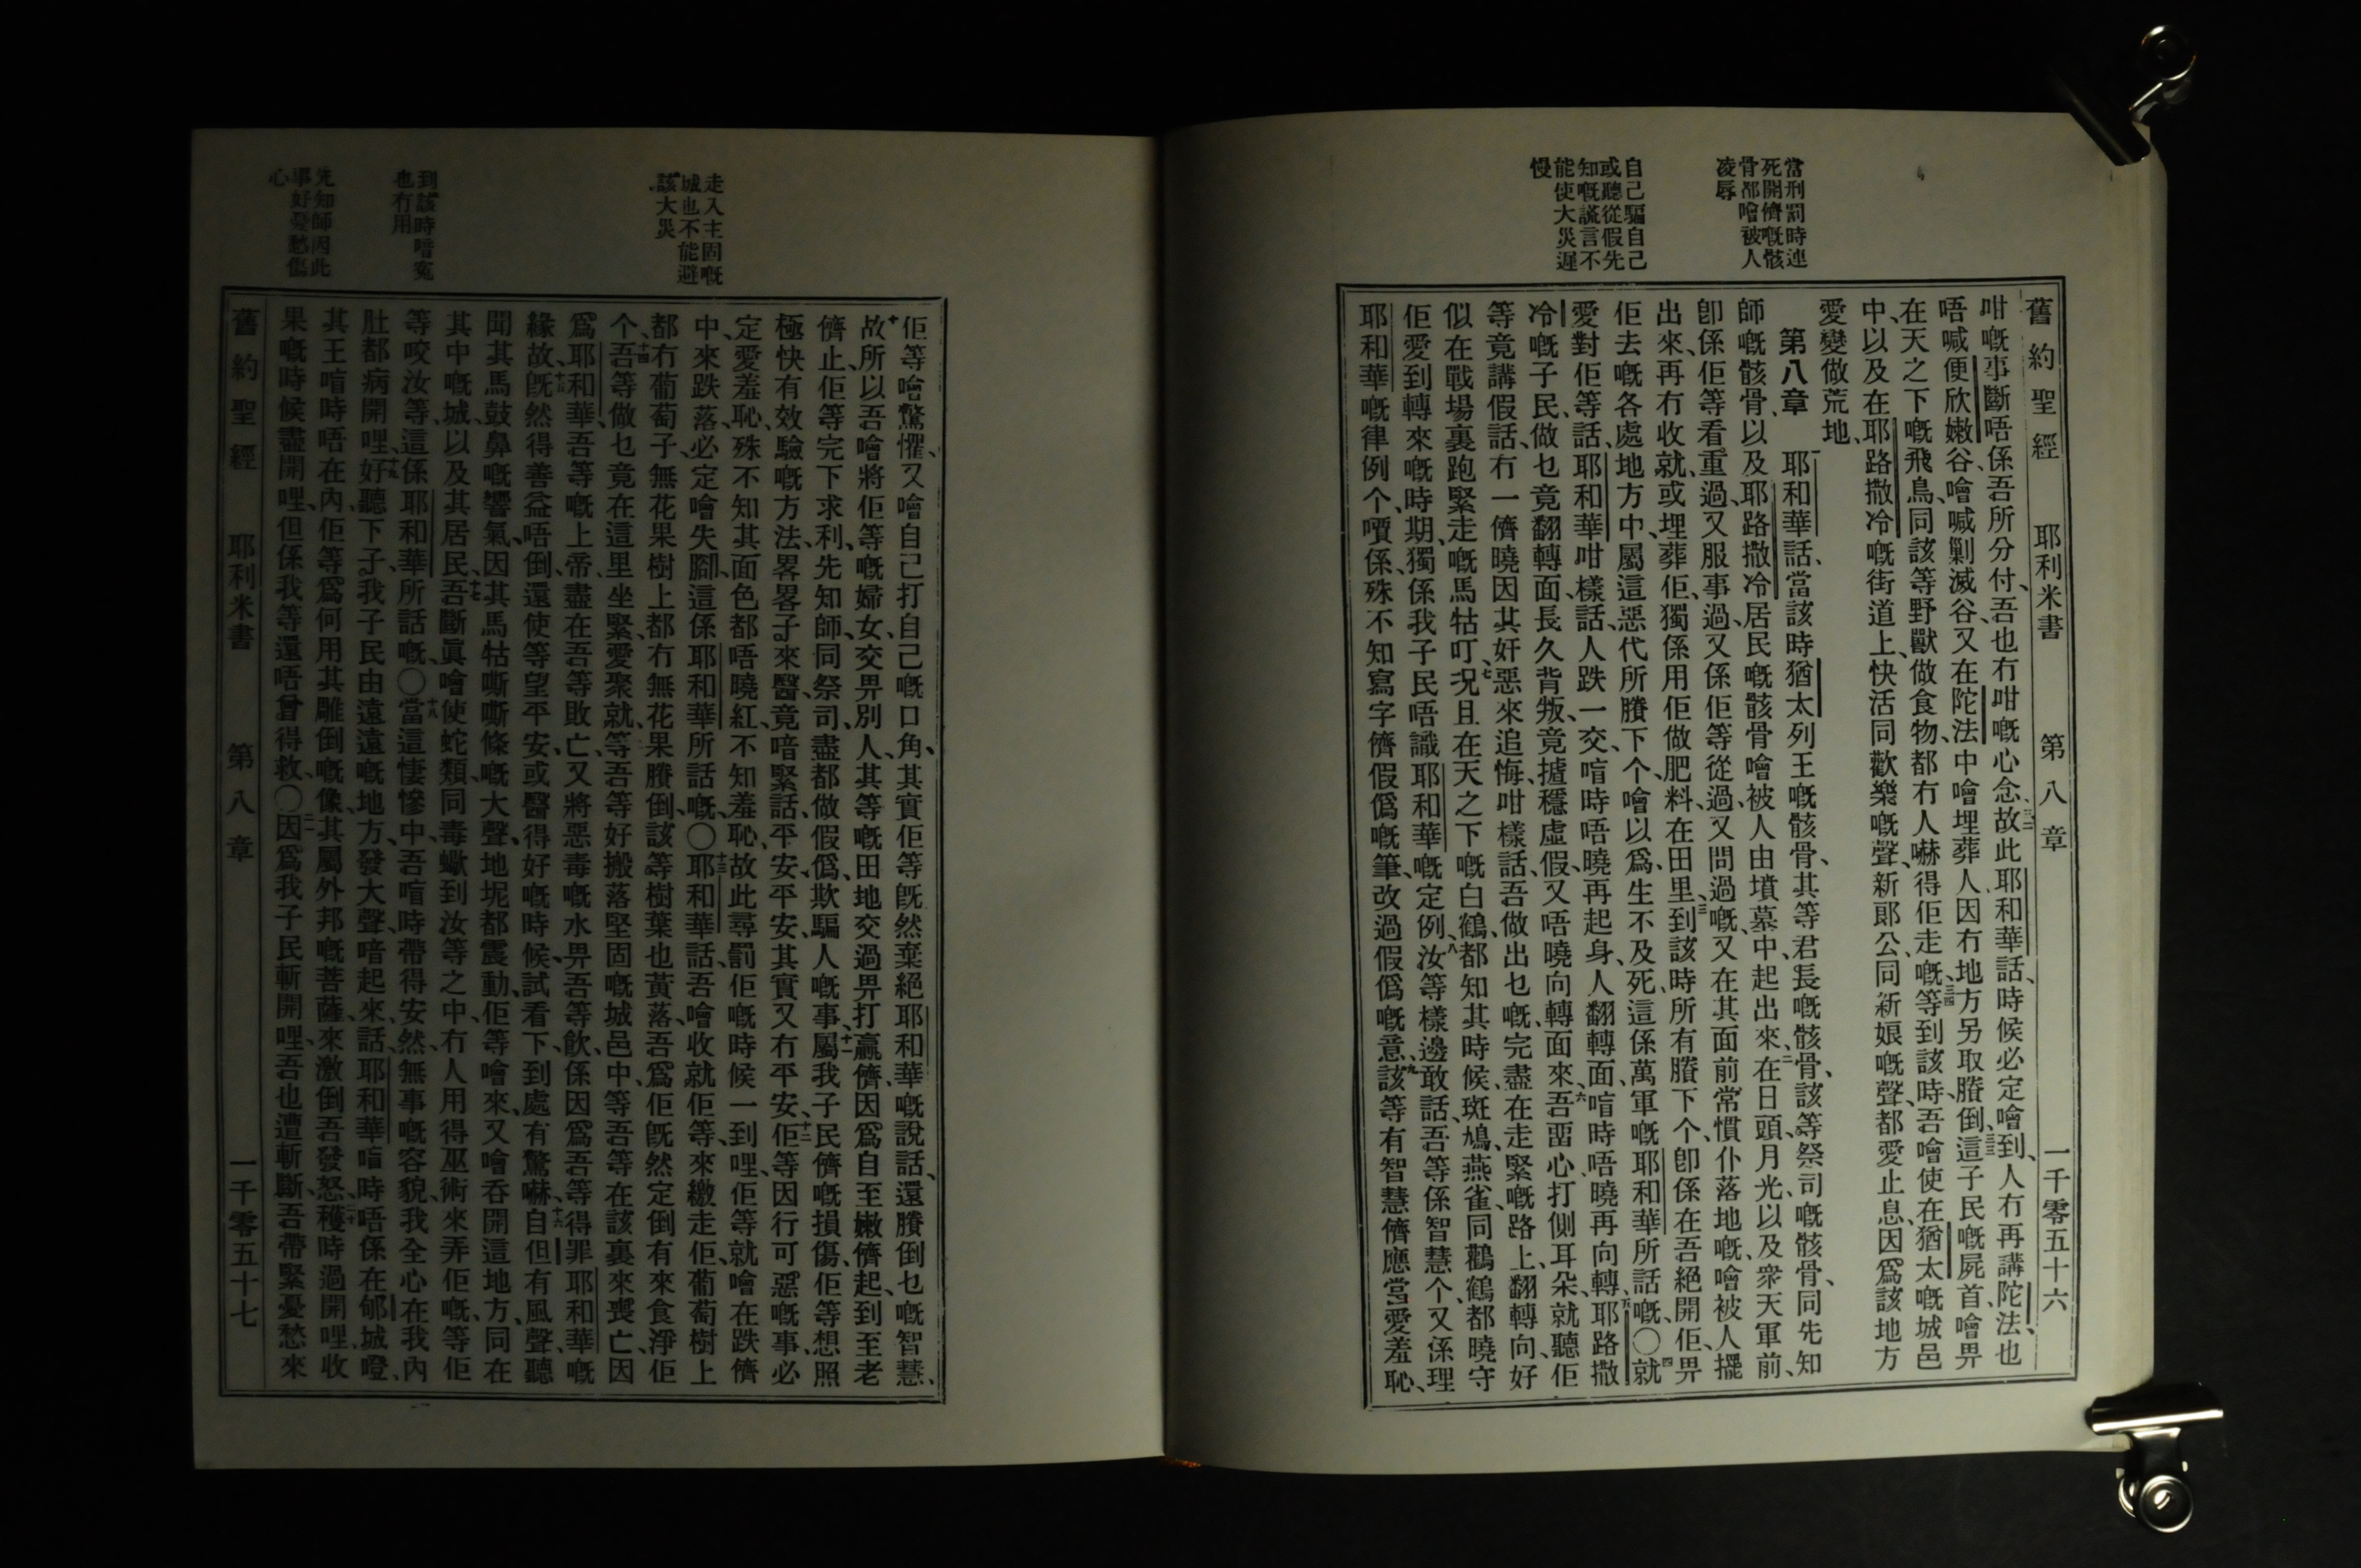 舊約聖經 耶利米書 第八章 一千零五十六
當刑罰時連
死開儕嘅骸
骨都噲被人
凌辱
自己騙自己
或聽從假先
知嘅謊言不
能使大災遲
慢
咁嘅事斷唔係吾所分付、吾也冇咁嘅心念、三二故此耶和華話、時候必定噲到、人冇再講陀法、也
唔喊便欣嫩谷、噲喊剿滅谷、又在陀法中噲埋葬人、因冇地方另取賸倒、三三這子民嘅屍首、噲畀
在天之下嘅飛鳥、同該等野獸做食物、都冇人嚇得佢走嘅、三四等到該時、吾噲使在猶太嘅城邑
中、以及在耶路撒冷嘅街道上、快活同歡樂嘅聲、新郎公同新娘嘅聲、都愛止息、因爲該地方
愛變做荒地、
第八章 一耶和華話、當該時猶太列王嘅骸骨、其等君長嘅骸骨、該等祭司嘅骸骨、同先知
師嘅骸骨、以及耶路撒冷居民嘅骸骨噲被人由墳墓中起出來、二在日頭、月光、以及衆天軍前、
卽係佢等看重過、又服事過、又係佢等從過、又問過嘅、又在其面前常慣仆落地嘅、噲被人擺
出來、再冇收就、或埋葬佢、獨係用佢做肥料、在田里、三到該時所有賸下个、卽係在吾絕開佢、畀
佢去嘅各處地方中、屬這惡代所賸下个、噲以爲生不及死、這係萬軍嘅耶和華所話嘅、〇四就
愛對佢等話、耶和華咁樣話、人跌一交、㖞時唔曉再起身、人翻轉面、㖞時唔曉再向轉、五耶路撒
冷嘅子民、做乜竟翻轉面、長久背叛、竟據穩虛假、又唔曉向轉面來、六吾畱心打側耳朵、就聽佢
等竟講假話、冇一儕曉因其奸惡來追悔、咁樣話、吾做出乜嘅、完盡在走緊嘅路上、翻轉向、好
似在戰場裏跑緊走嘅馬牯叮、七况且在天之下嘅白鶴、都知其時候、斑鳩、燕雀、同鸛鶴都曉守
佢愛到轉來嘅時期、獨係我子民唔識耶和華嘅定例、八汝等樣邊敢話、吾等係智慧个、又係理
耶和華嘅律例个、嘪係、殊不知寫字儕假僞嘅筆、改過假僞嘅意、九該等有智慧儕應當愛羞恥、
走入主固嘅
城也不能避
該大災
到該時喑寃
也冇用
先知師因此
事好憂愁傷
心
佢等噲驚懼、又噲自己打自己嘅口角、其實佢等旣然棄絕耶和華嘅說話、還賸倒乜嘅智慧、
十故所以吾噲將佢等嘅婦女、交畀別人、其等嘅田地交過畀打贏儕、因爲自至嫩儕起、到至老
儕止、佢等完下求利、先知師、同祭司、盡都做假僞、欺騙人嘅事、十一屬我子民儕嘅損傷、佢等想照
極快有效驗嘅方法、畧畧子來醫、竟喑緊話、平安、平安、其實又冇平安、十二佢等因行可惡嘅事、必
定愛羞恥、殊不知其面色都唔曉紅、不知羞恥、故此尋罰佢嘅時候一到哩、佢等就噲在跌儕
中、來跌落、必定噲失腳、這係耶和華所話嘅、〇十三耶和華話、吾噲收就佢等、來繳走佢、葡萄樹上
都冇葡萄子、無花果樹上都冇無花果賸倒、該等樹葉也黃落、吾爲佢旣然定倒有來食淨佢
个、十四吾等做乜竟在這里坐緊、愛聚就、等吾等好搬落堅固嘅城邑中、等吾等在該裏來喪亡、因
爲耶和華、吾等嘅上帝、盡在吾等敗亡、又將惡毒嘅水畀吾等飲、係因爲吾等得罪耶和華嘅
緣故、十五旣然得善益唔倒、還使等望平安、或醫得好嘅時候、試看下、到處有驚嚇、十六自但有風聲、聽
聞其馬鼓鼻嘅響氣、因其馬牯嘶嘶條嘅大聲、地坭都震動、佢等噲來、又噲呑開這地方、同在
其中嘅城、以及其居民、十七吾斷眞噲使蛇類、同毒蠍到汝等之中、冇人用得巫術來弄佢嘅、等佢
等咬汝等、這係耶和華所話嘅、〇十八當這悽慘中、吾㖞時帶得安然、無事嘅容貌、我全心在我內
肚都病開哩、十九好聽下子、我子民由遠遠嘅地方、發大聲、喑起來、話、耶和華㖞時唔係在郇城噔、
其王㖞時唔在內、佢等爲何用其雕倒嘅像、其屬外邦嘅菩薩、來激倒吾發怒、二十穫時過開哩、收
果嘅時候盡開哩、但係我等還唔曾得救、〇二一因爲我子民斬開哩、吾也遭斬斷、吾帶緊憂愁來
舊約聖經 耶利米書 第八章 一千零五十七